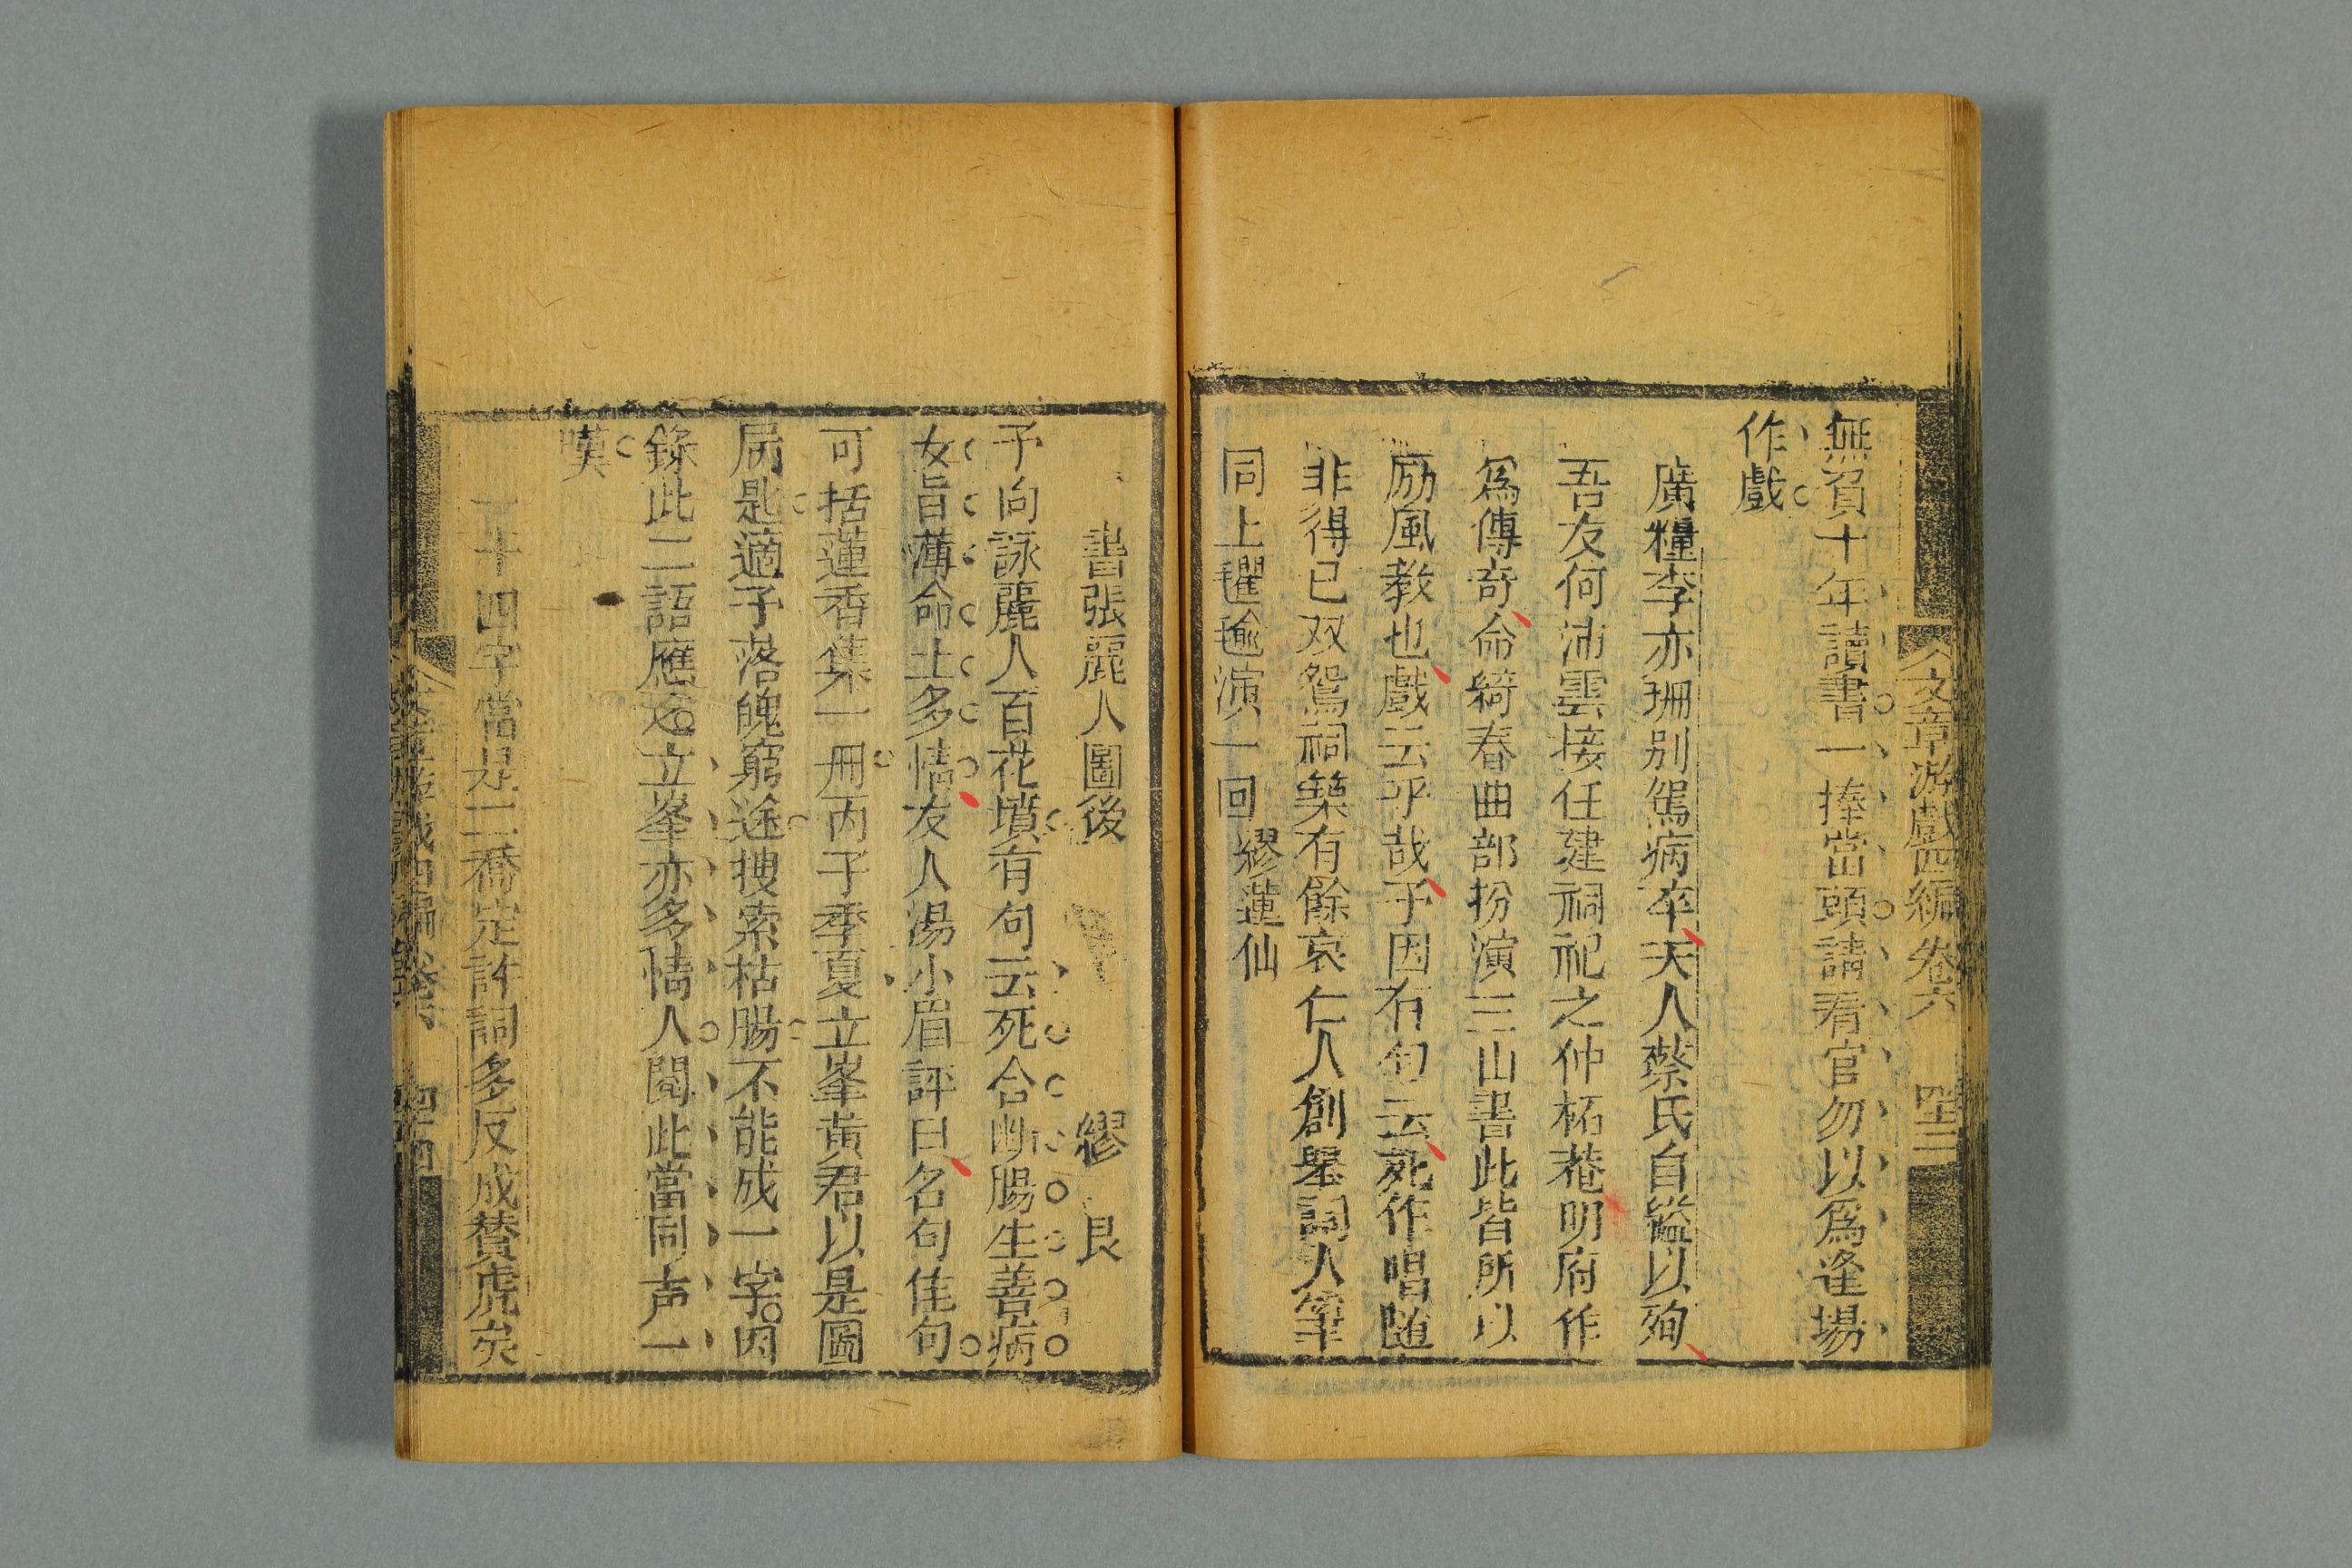 文章游戲四編卷六
無負十年讀書一捧當頭請看官勿以爲逢場
作戲
廣糧李亦珊别駕病卒夫人蔡氏自縊以殉
吾友何沛雲接任建祠祀之仲柘菴明府作
爲傳奇命綺春曲部扮演三山書此皆所以
励風教也戲云乎哉予因有句云死作唱随
非得已双鴛祠築有餘哀仁人創舉詞人筆
同上氍毹演一回 繆蓮仙
書張麗人圖後 繆艮
予向詠麗人百花墳有句云死合斷腸生善病
女皆薄命士多情友人湯小眉評曰名句佳句
可括蓮香集一冊丙子季夏立峯黄君以是圖
属題適予落魄窮途搜索枯腸不能成一字因
錄此二語應之立峯亦多情人閲此當同声一
嘆
十四字當是二喬定評詞多反成贅疣矣